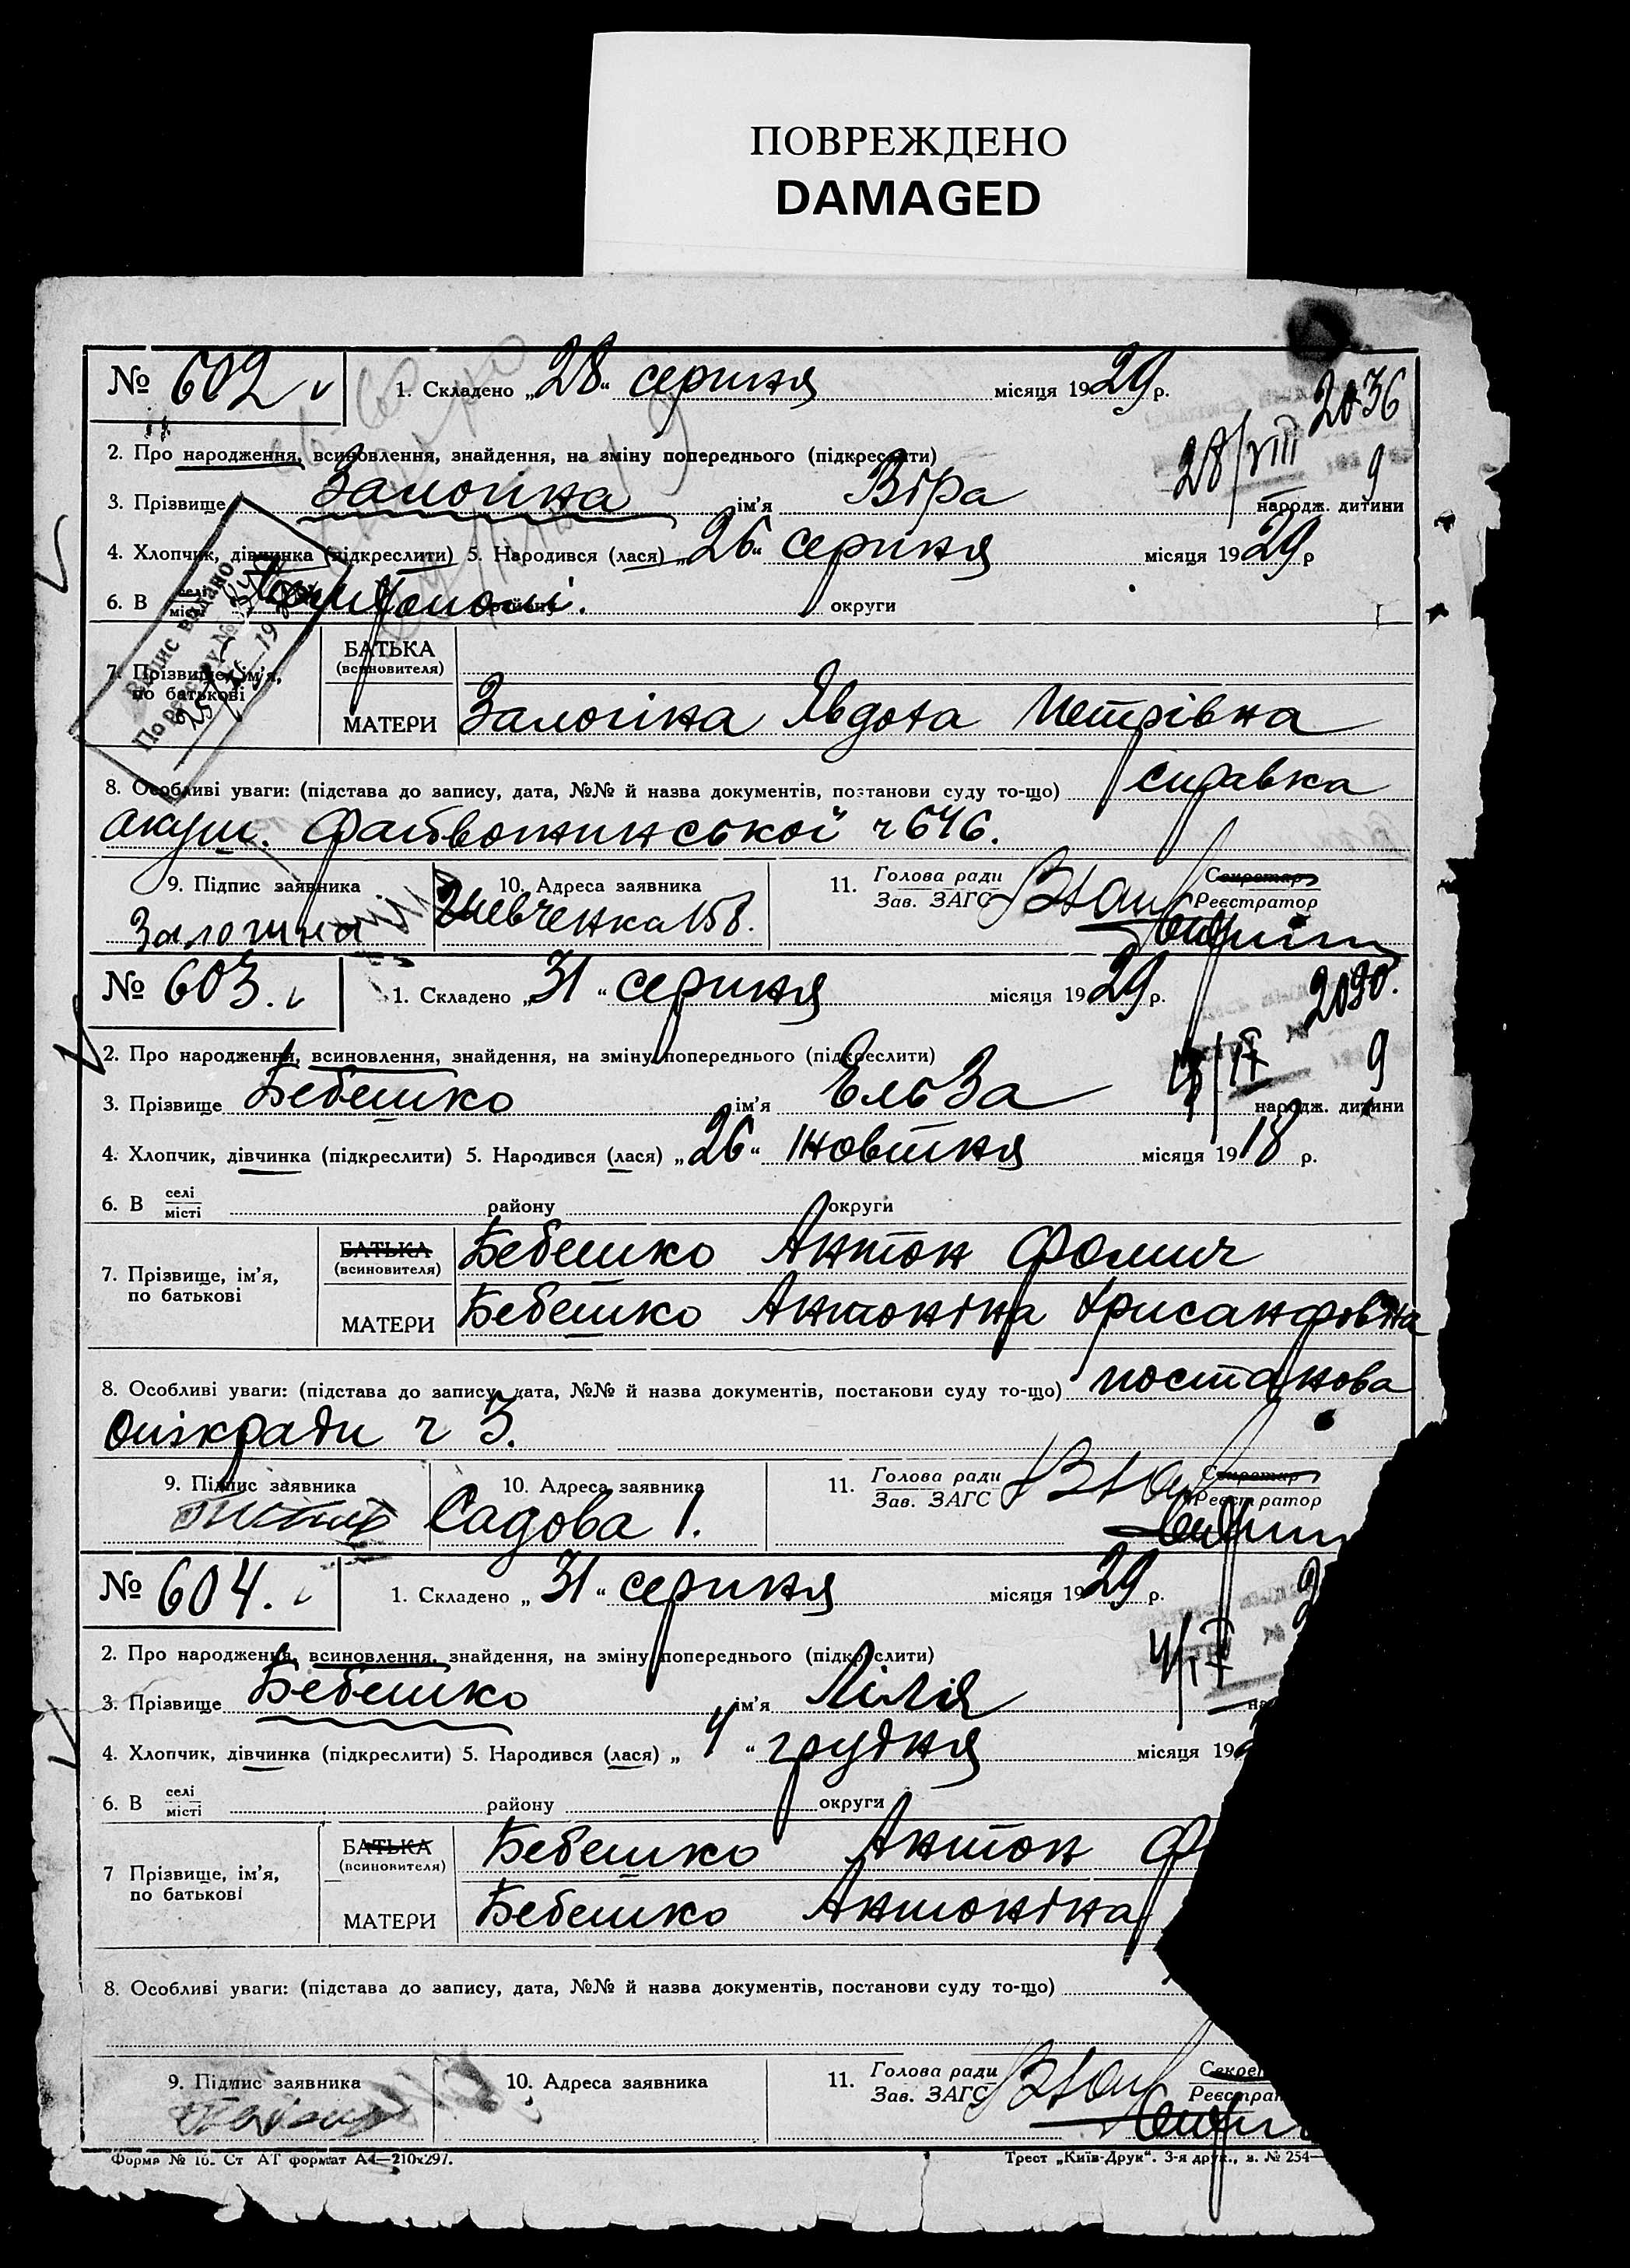 ПОВРЕЖДЕНО
DAMAGED
№ 602 1. Складено „28“ серпня місяця 1929 р.
2036
2. Про народження, всиновлення, знайдення, на зміну попереднього (підкреслити)
28/VIII 9
3. Прізвище Залогіна ім’я Віра народж. дитини
4. Хлопчик, дівчинка (підкреслити) 5. Народився (лася) „26“ серпня місяця 1929 р
6. В селі місті району округи
Випис видано
По реєстру №
7. Прізвище, ім’я, по батькові
БАТЬКА (всиновителя)
МАТЕРИ Залогіна Явдоха Петрівна
8. Особливі уваги: (підстава до запису, дата, №№ й назва документів, постанови суду то-що) справка
акуш. ч 646.
9. Підпис заявника 10. Адреса заявника 11. Голова ради Зав. ЗАГС Секретар Реєстратор
Залогина Шевченка 158.
№ 603. 1. Складено „31“ серпня місяця 1929 р.
2090.
2. Про народження, всиновлення, знайдення, на зміну попереднього (підкреслити)
9
3. Прізвище Бебешко ім’я Ельза народж. дитини
4. Хлопчик, дівчинка (підкреслити) 5. Народився (лася) „26“ жовтня місяця 1918 р.
6. В селі місті району округи
7. Прізвище, ім’я, по батькові
БАТЬКА (всиновителя) Бебешко Антон Фомич
МАТЕРИ Бебешко Антоніна Хрисанфовна
8. Особливі уваги: (підстава до запису, дата, №№ й назва документів, постанови суду то-що) постанова
опікради ч 3.
9. Підпис заявника 10. Адреса заявника 11. Голова ради Зав. ЗАГС Секретар Реєстратор
Садова 1.
№ 604. 1. Складено „31“ серпня місяця 1929 р.
2. Про народження, всиновлення, знайдення, на зміну попереднього (підкреслити)
3. Прізвище Бебешко ім’я Лілія
4. Хлопчик, дівчинка (підкреслити) 5. Народився (лася) „4“ грудня місяця 19
6. В селі місті району округи
7 Прізвище, ім’я, по батькові
БАТЬКА (всиновителя) Бебешко Антон Ф
МАТЕРИ Бебешко Антоніна
8. Особливі уваги: (підстава до запису, дата, №№ й назва документів, постанови суду то-що)
9. Підпис заявника 10. Адреса заявника 11. Голова ради Зав. ЗАГС Секре Реєстра
Форма № 16. Ст АТ формат А4—210x297. Трест „Київ-Друк“. 3-я друк., з. № 254—